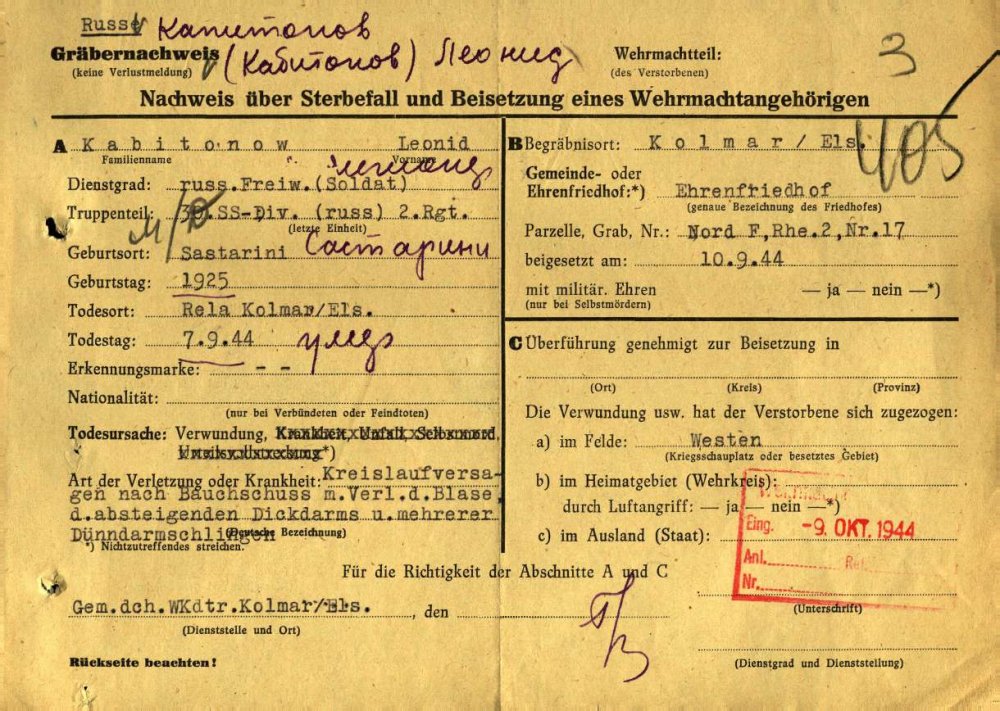 Russe Капитонов
Gräbernachweis (Кабитонов) Леонид
(keine Verlustmeldung)
Wehrmachtteil:
(des Verstorbenen)
3
Nachweis über Sterbefall und Beisetzung eines Wehrmachtangehörigen
A Kabitonow Leonid
Familienname Vorname
Dienstgrad: russ.Freiw.(Soldat)
Truppenteil: 30.SS-Div. (russ) 2.Rgt.
(letzte Einheit)
Geburtsort: Sastarini Састарини
Geburtstag: 1925
Todesort: Rela Kolmar/Els.
Todestag: 7.9.44
Erkennungsmarke: - -
Nationalität:
(nur bei Verbündeten oder Feindtoten)
Todesursache: Verwundung, Krankheit, Unfall, Selbstmord,
Urteilsvollstreckung*)
Art der Verletzung oder Krankheit: Kreislaufversa-
gen nach Bauchschuss m.Verl.d.Blase,
d.absteigenden Dickdarms u.mehrerer
Dünndarmschlingen
(Deutsche Bezeichnung)
*) Nichtzutreffendes streichen.
B Begräbnisort: Kolmar/Els.
405
Gemeinde- oder
Ehrenfriedhof:*) Ehrenfriedhof
(genaue Bezeichnung des Friedhofes)
Parzelle, Grab, Nr.: Nord F,Rhe.2,Nr.17
beigesetzt am: 10.9.44
mit militär. Ehren — ja — nein —*)
(nur bei Selbstmördern)
C Überführung genehmigt zur Beisetzung in
(Ort) (Kreis) (Provinz)
Die Verwundung usw. hat der Verstorbene sich zugezogen:
a) im Felde: Westen
(Kriegsschauplatz oder besetztes Gebiet)
b) im Heimatgebiet (Wehrkreis):
durch Luftangriff: — ja — nein —*)
c) im Ausland (Staat):
Eing. -9. OKT. 1944
Anl.
Nr.
Für die Richtigkeit der Abschnitte A und C
Gem.dch.WKdtr.Kolmar/Els., den
(Dienststelle und Ort)
(Unterschrift)
(Dienstgrad und Dienststellung)
Rückseite beachten!